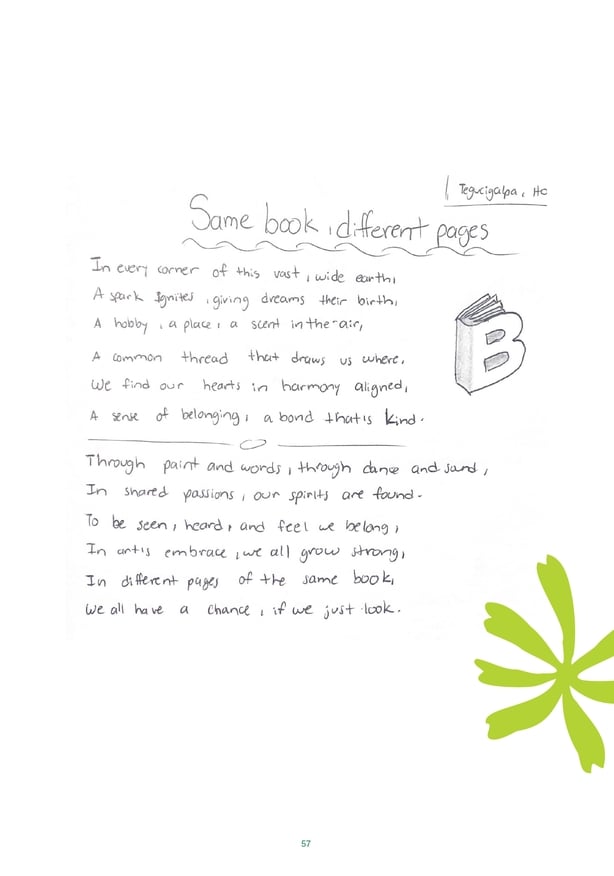 Tegucigalpa, HC
Same book, different pages
In every corner of this vast, wide earth,
A spark Ignites, giving dreams their birth,
A hobby, a place, a scent in the-air,
A common thread that draws us where,
We find our hearts in harmony aligned,
A sense of belonging, a bond that is kind.
Through paint and words, through dance and sand,
In shared passions, our spirits are found.
To be seen, heard, and feel we belong,
In art's embrace, we all grow strong,
In different pages of the same book,
We all have a chance, if we just look.
B
57